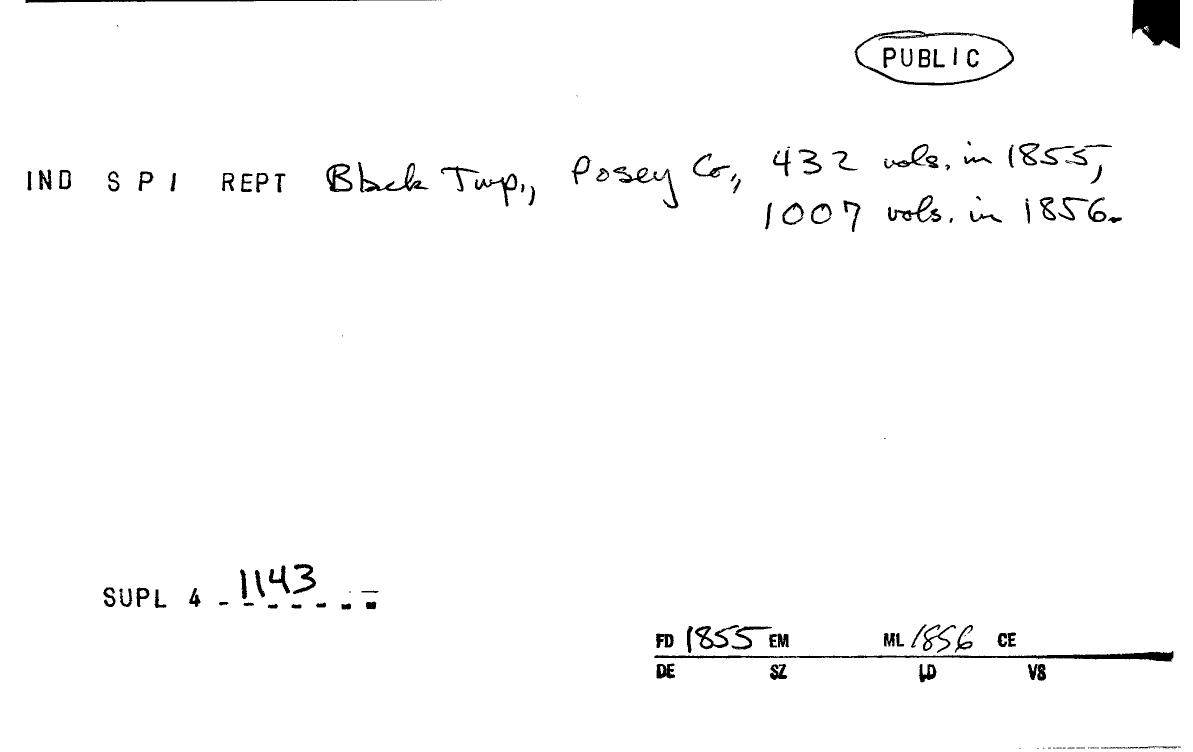 PUBLIC
IND S P I REPT Black Twp., Posey Co., 432 vols. in 1855,
1007 vols. in 1856.
SUPL 4 1143
FD 1855 EM ML 1856 CE
DE SZ LD VS